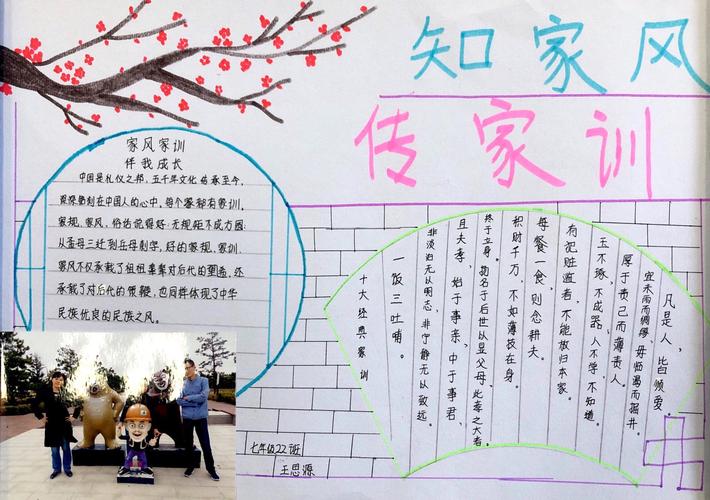 知家风
传家训
家风家训
伴我成长
中国是礼仪之邦,五千年文化传承至今,
深深镌刻在中国人的心中,每个家都有家训,
家规、家风,俗话说得好:无规矩不成方圆。
从孟母三迁到岳母刺字,好的家规、家训、
家风不仅承载了祖祖辈辈对后代的,还
承载了对后代的,也同样体现了中华
民族优良的民族之风。
凡是人,皆须爱。
宜未雨而绸缪,毋临渴而掘井。
厚于责己而薄责人。
玉不琢,不成器;人不学,不知道。
有犯赃滥者,不能放归本家。
每餐一食,则念耕夫。
积财千万,不如薄技在身。
终于立身。扬名于后世以显父母,此孝之大者。
且夫孝,始于事亲,中于事君,
非淡泊无以明志,非宁静无以致远。
一饭三吐哺。
十大经典家训
七年级22班
王思源